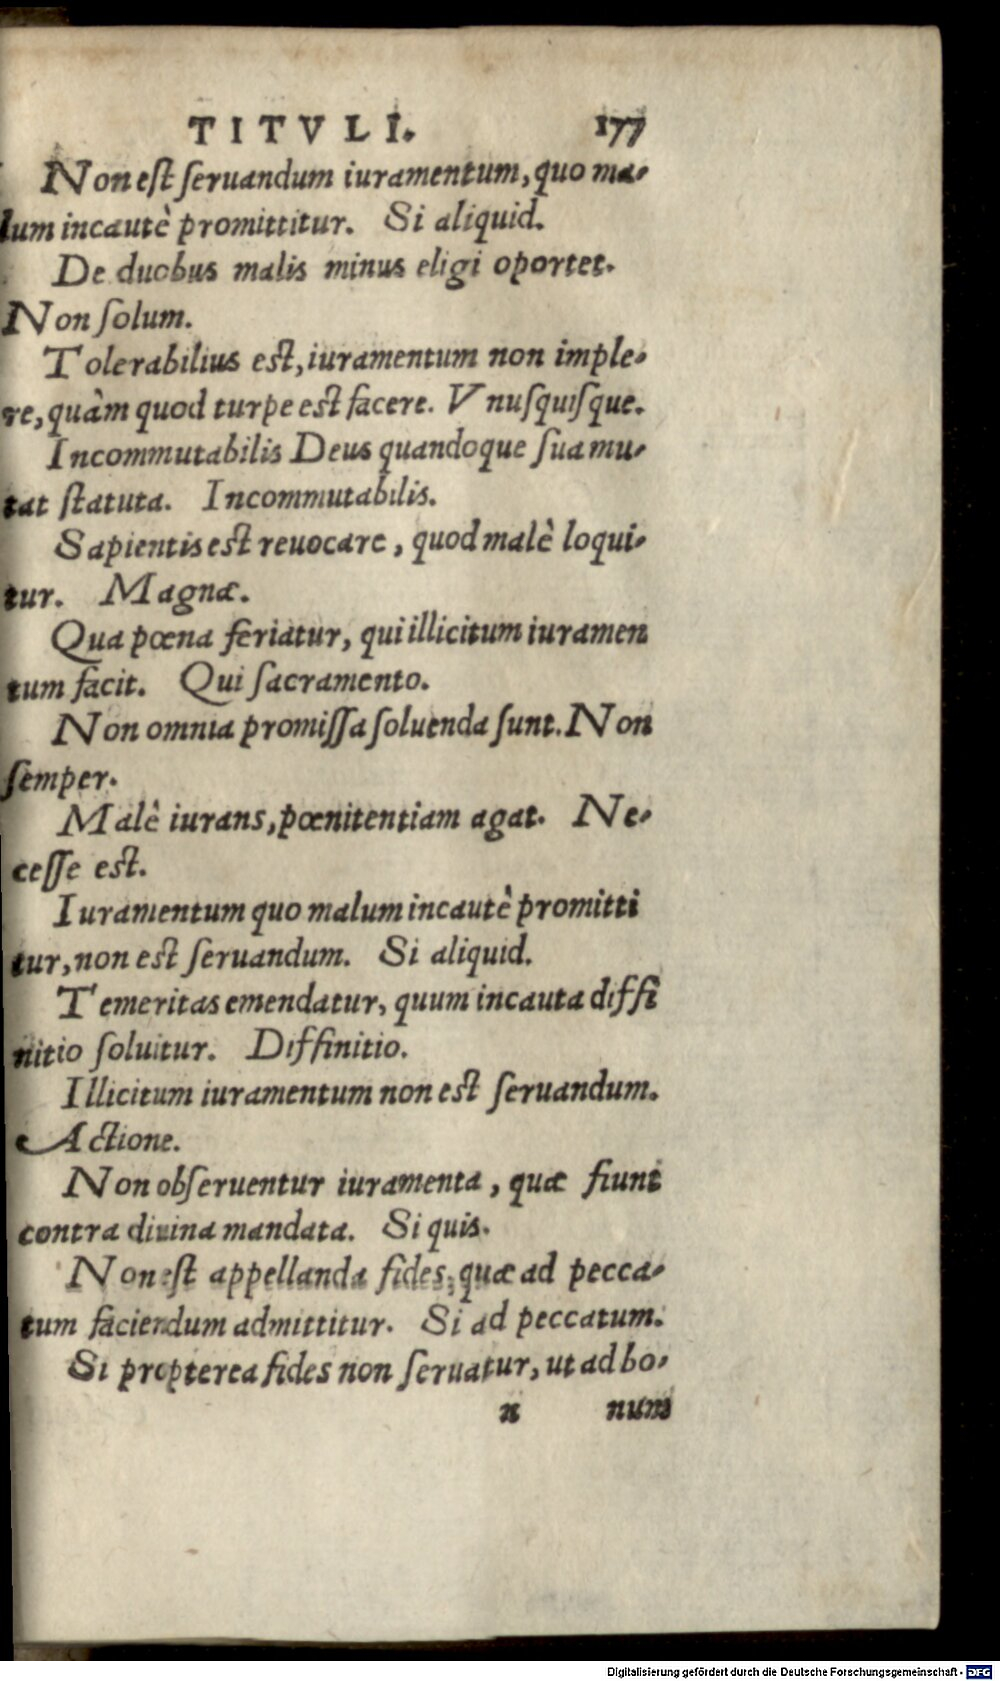 TITVLI. 177
Non est seruandum iuramentum, quo ma-
lum incautè promittitur. Si aliquid.
De duobus malis minus eligi oportet.
Non solum.
Tolerabilius est, iuramentum non imple-
re, quàm quod turpe est facere. Vnusquisque.
Incommutabilis Deus quandoque sua mu-
tat statuta. Incommutabilis.
Sapientis est reuocare, quod malè loqui-
tur. Magnæ.
Qua pœna feriatur, qui illicitum iuramen
tum facit. Qui sacramento.
Non omnia promissa soluenda sunt. Non
semper.
Malè iurans, pœnitentiam agat. Ne-
cesse est.
Iuramentum quo malum incautè promitti
tur, non est seruandum. Si aliquid.
Temeritas emendatur, quum incauta diffi
nitio soluitur. Diffinitio.
Illicitum iuramentum non est seruandum.
Actione.
Non obseruentur iuramenta, quæ fiunt
contra diuina mandata. Si quis.
Non est appellanda fides, quæ ad pecca-
tum faciendum admittitur. Si ad peccatum.
Si propterea fides non seruatur, ut ad bo-
n num
Digitalisierung gefördert durch die Deutsche Forschungsgemeinschaft - DFG